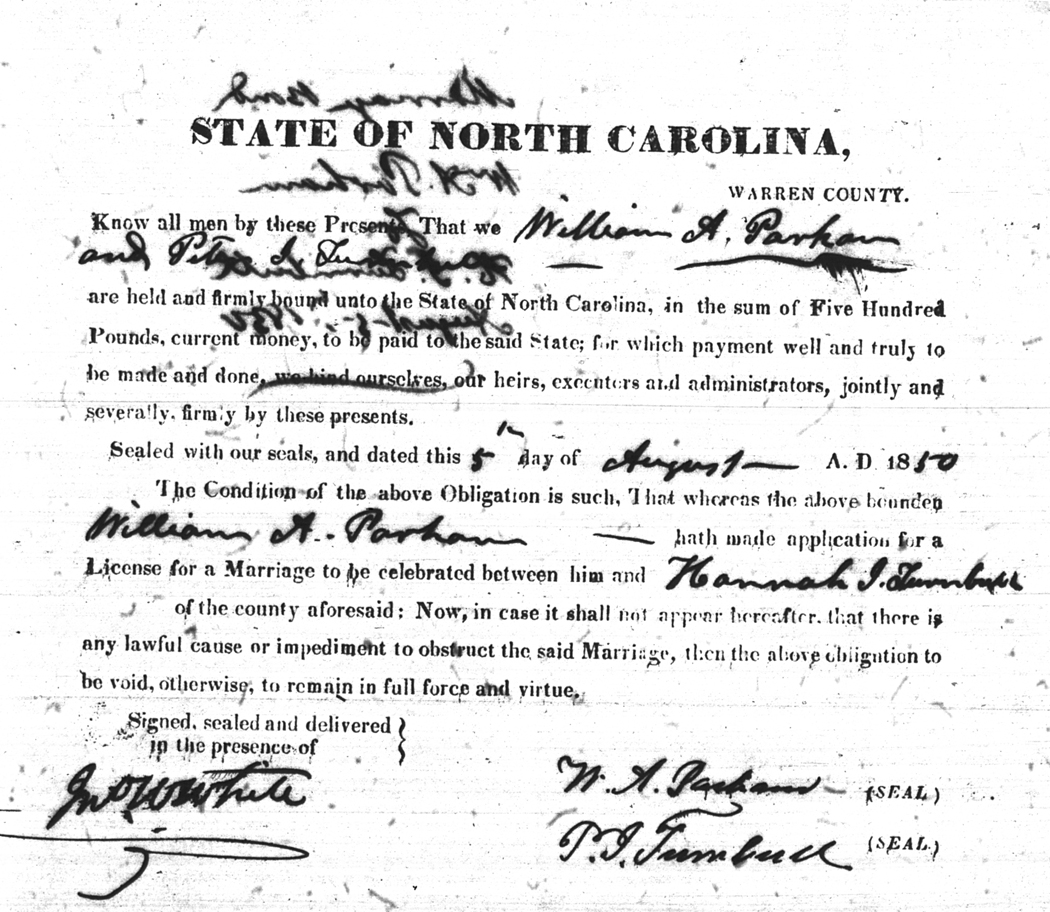 Marriage Bond
STATE OF NORTH CAROLINA,
W A. Parham
WARREN COUNTY.
Know all men by these Presents, That we William A. Parham
and Peter J. Turnbull
are held and firmly bound unto the State of North Carolina, in the sum of Five Hundred
August 5th 1850
Pounds, current money, to be paid to the said State; for which payment well and truly to
be made and done, we bind ourselves, our heirs, executers and administrators, jointly and
severally, firmly by these presents.
Sealed with our seals, and dated this 5th day of August A. D. 1850
The Condition of the above Obligation is such, That whereas the above bounden
William A. Parham hath made application for a
License for a Marriage to be celebrated between him and Hannah J. Turnbull
of the county aforesaid; Now, in case it shall not appear hereafter, that there is
any lawful cause or impediment to obstruct the said Marriage, then the above obligation to
be void, otherwise, to remain in full force and virtue.
Signed, sealed and delivered }
in the presence of
Jno W White
W. A. Parham (SEAL)
P. J. Turnbull (SEAL)